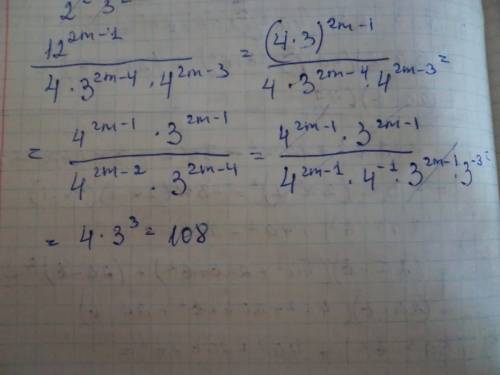 2 3
12^{2m-1} / (4 · 3^{2m-4} · 4^{2m-3}) = (4·3)^{2m-1} / (4 · 3^{2m-4} · 4^{2m-3}) =
= (4^{2m-1} · 3^{2m-1}) / (4^{2m-2} · 3^{2m-4}) = (4^{2m-1} · 3^{2m-1}) / (4^{2m-1} · 4^{-1} · 3^{2m-1} · 3^{-3}) =
= 4 · 3^3 = 108